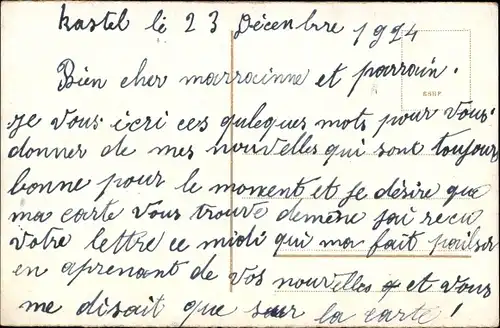 Kastel le 23 Décenbre 1924
Bien cher marrainne et parrain.
SSBP
je vous écri ces quleques mots pour vous
donner de mes nouvelles qui sont toujour
bonne pour le moment et je désire que
ma carte vous trouve demême jai recu
votre lettre ce midi qui ma fait
en aprenant de vos nouvelles et vous
me disait que sur la carte!